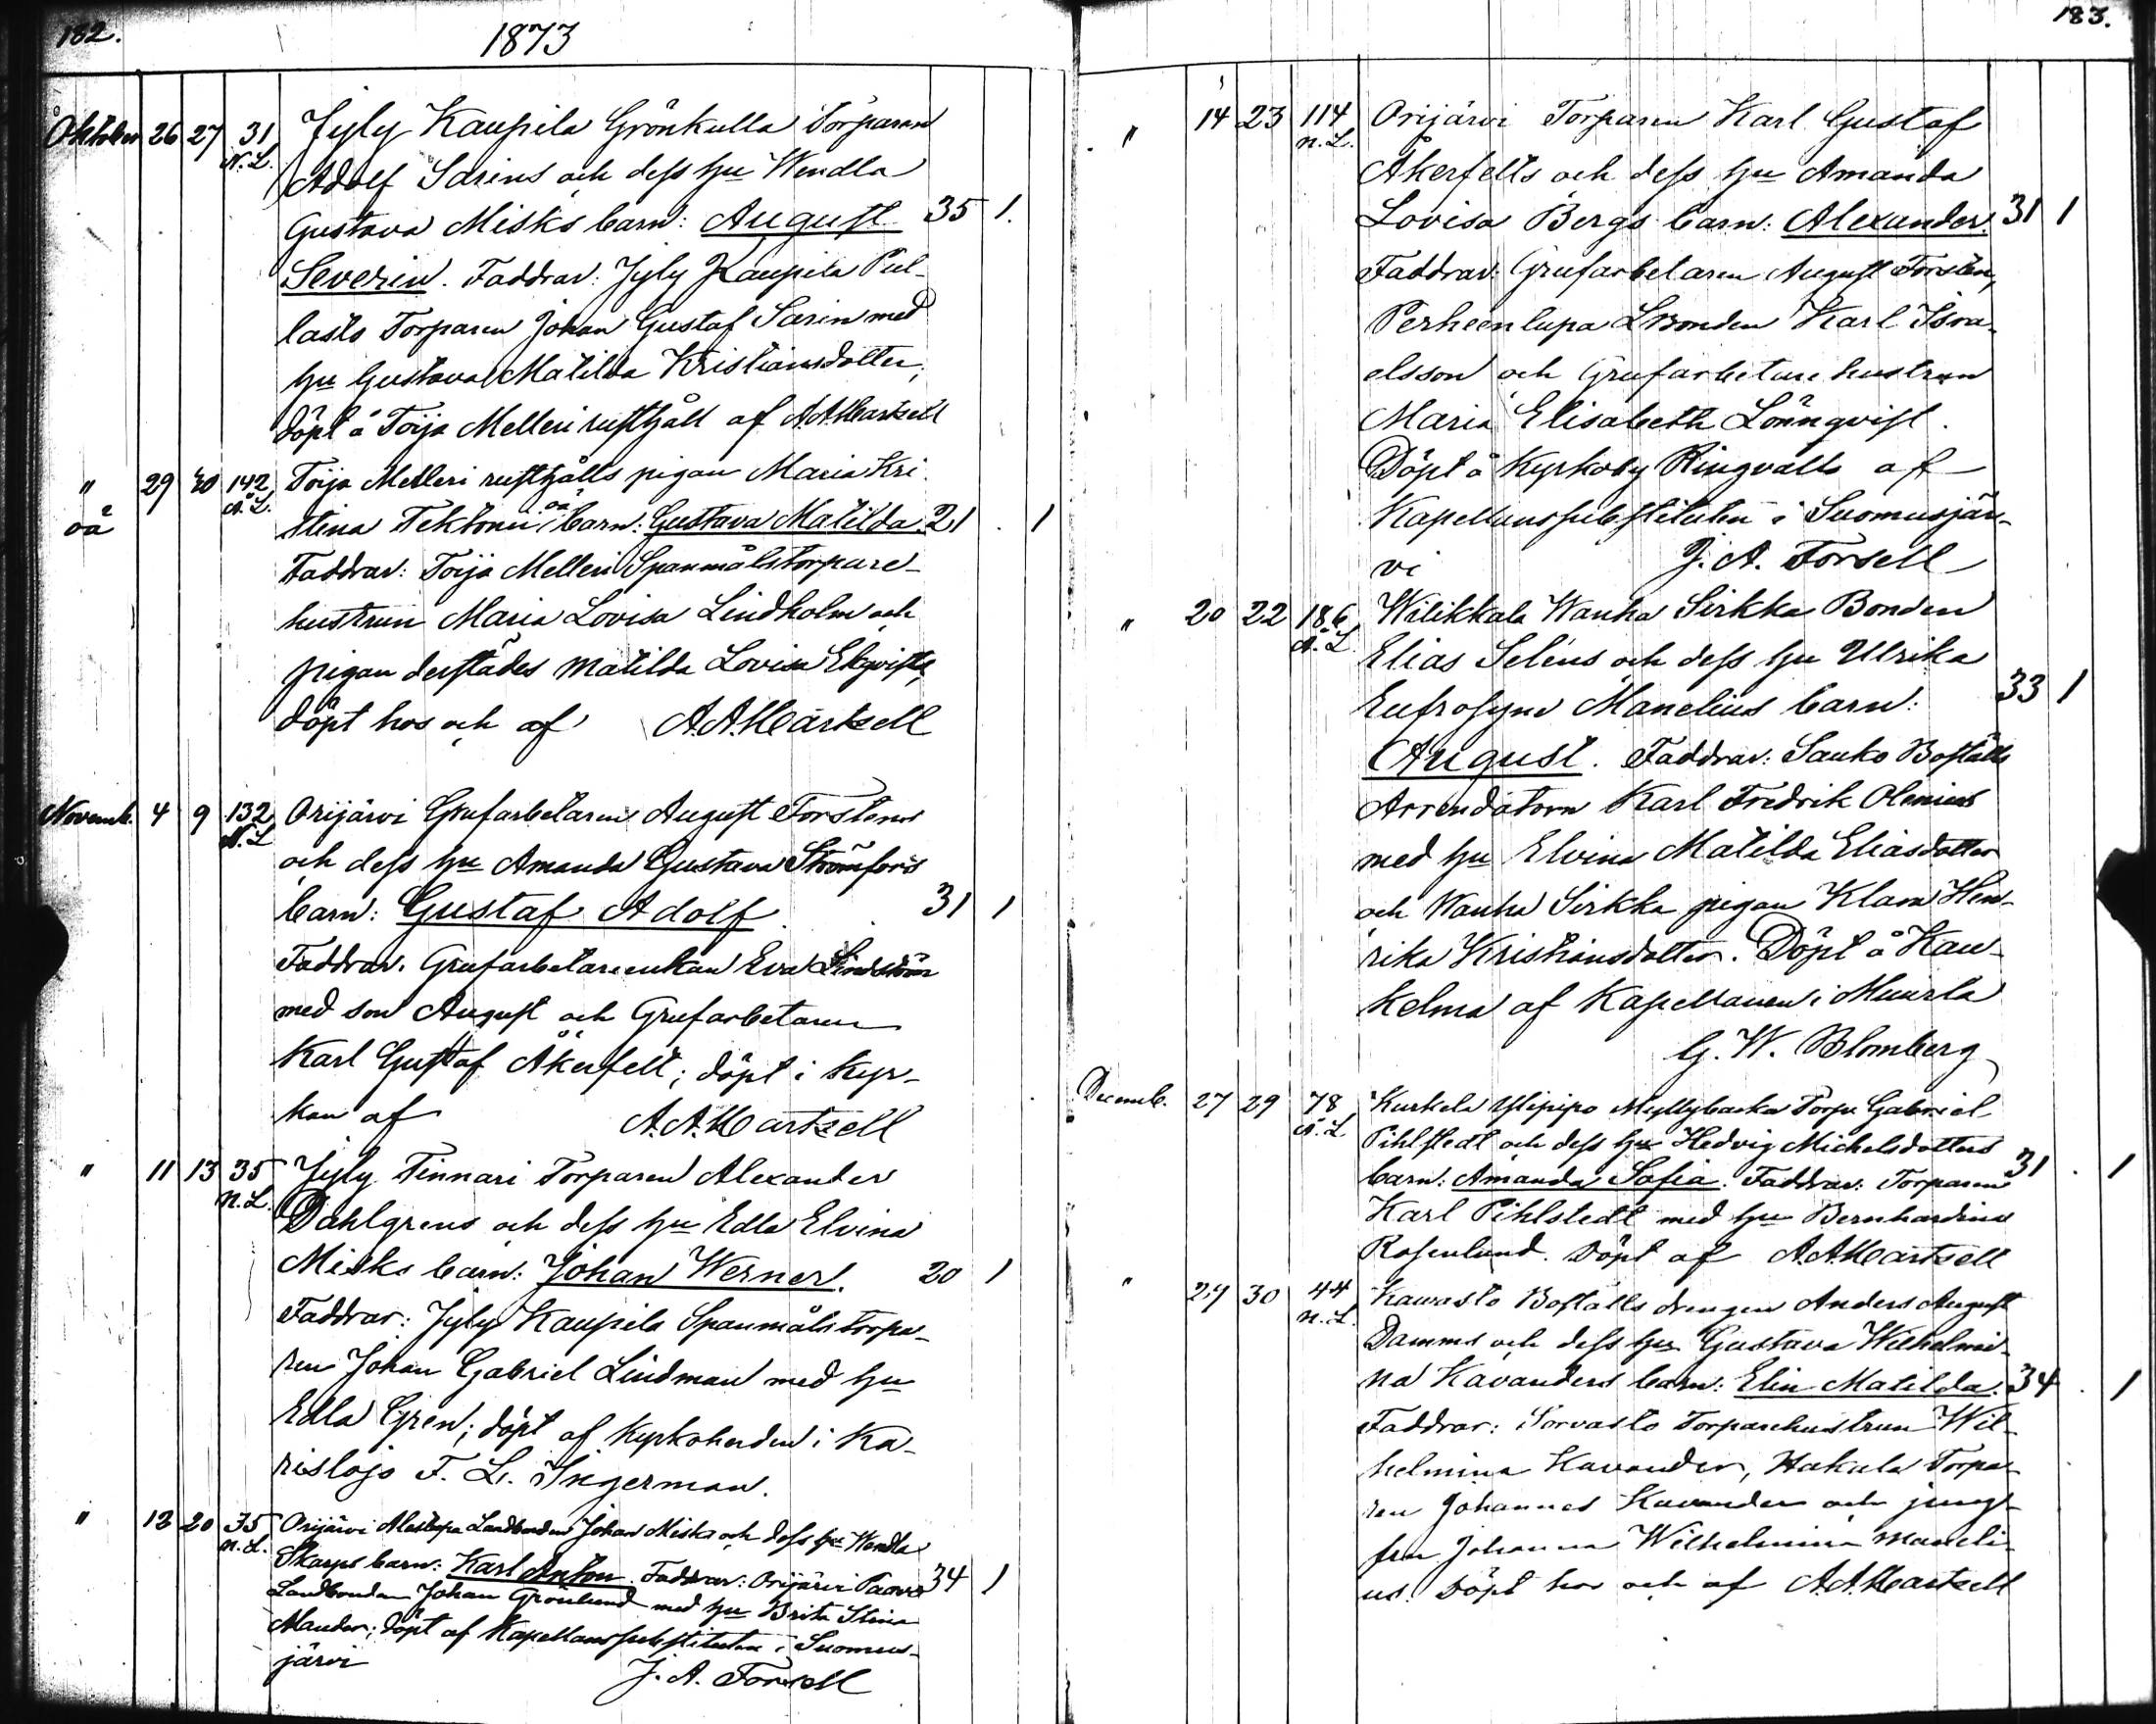 182.
1873
Oktober 26 27 31 N.L. Jyly Kaupila Grönkulla Torparen
Adolf Sarins och dess hu Wendla
Gustava Misks barn: August 35 1.
Severin. Faddrar: Jyly Kaupila Pul-
lasto Torparen Johan Gustaf Sarin med
hu Gustava Matilda Kristiansdotter;
döpt å Toija Melleri rusthåll af A.A. Hartzell
" oä 29 30 142 N.L. Toija Melleri rusthålls pigan Maria Kri-
stina Tektonii oä barn: Gustava Matilda. 21 1
Faddrar: Toija Melleri Spanmålstorpare-
hustrun Maria Lovisa Lindholm och
pigan derstädes Matilda Lovisa Ekqvist,
döpt hos och af A.A. Hartzell
Novemb. 4 9 132 N.L. Orijärvi Grufarbetaren August Forstens
och dess hu Amanda Gustava Strömfors
barn: Gustaf Adolf. 31 1
Faddrar: Grufarbetareenkan Eva Lindström
med son August och Grufarbetaren
Karl Gustaf Åkerfelt; döpt i Kyr-
kan af A.A. Hartzell
" 11 13 35 N.L. Jyly Tinnari Torparen Alexander
Dahlgrens och dess hu Edla Elvina
Misks barn: Johan Werner. 20 1
Faddrar: Jyly Kaupila Spanmålstorpa-
ren Johan Gabriel Lindman med hu
Edla Gren; döpt af Kyrkoherden i Ka-
rislojo F. L. Ingerman.
" 12 20 35 N.L. Orijärvi Alastupa Landbonden Johan Misks och dess hu Wendla
Skarps barn: Karl Anton. Faddrar: Orijärvi Paavo 34 1
Landbonden Johan Grönlund med hu Brita Stina
Mander; döpt af Kapellanssubstituten i Suomus-
järvi J. A. Forsell
183.
" 14 23 114 N.L. Orijärvi Torparen Karl Gustaf
Åkerfelts och dess hu Amanda
Lovisa Bergs barn: Alexander. 31 1
Faddrar: Grufarbetaren August Forstén,
Perheentupa LBonden Karl Isra-
elsson och Grufarbetare hustrun
Maria Elisabeth Lönnqvist.
Döpt å Kyrkoby Ringvalls af
Kapellanssubstituten i Suomusjär-
vi J. A. Forsell
" 20 22 186 N.L. Wilikkala Wanha Sirkka Bonden
Elias Seléns och dess hu Ulrika
Eufrosyne Manelius barn: 33 1
August. Faddrar: Sauko Boställs
Arrendatorn Karl Fredrik Olenius
med hu Elvina Matilda Eliasdotter
och Wanha Sirkka pigan Klara Hen-
rika Kristiansdotter. Döpt å Kau-
kelma af Kapellanen i Muurla
G. W. Blomberg
Decemb. 27 29 78 N.L. Kurkela Ylipipo Myllybacka Torp: Gabriel
Pihlstedt och dess hu Hedvig Michelsdotters
barn: Amanda Sofia. Faddrar: Torparen 31 1
Karl Pihlstedt med hu Bernhardina
Rosenlund. Döpt af A.A. Hartzell
" 29 30 44 N.L. Kavasto Boställs drengen Anders August
Damms och dess hu Gustava Wilhelmi-
na Kavanders barn: Elin Matilda. 34 1
Faddrar: Torvasto Torparehustrun Wil-
helmina Kavander, Hakala Torpa-
ren Johannes Kavander och jung-
frun Johanna Wilhelmina Maneli-
us. Döpt hos och af A.A. Hartzell